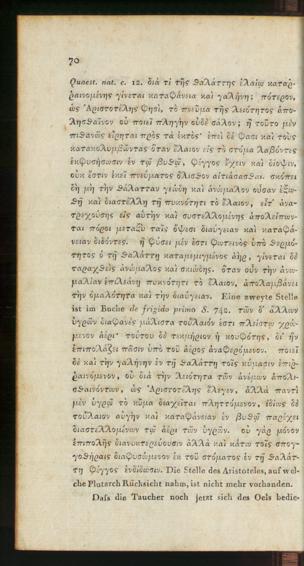 70
Quaest. nat. c. 12. διὰ τί τῆς θαλάττης ἐλαίῳ καταῤ-
ῥαινομένης γίνεται καταφάνεια καὶ γαλήνη; πότερον,
ὡς Ἀριστοτέλης φησὶ, τὸ πνεῦμα τῆς λειότητος ἀπο-
λισθαῖνον οὐ ποιεῖ πληγὴν οὐδὲ σάλον; ἢ τοῦτο μὲν
πιθανῶς εἴρηται πρὸς τὰ ἐκτός· ἐπεὶ δέ φασι καὶ τοὺς
κατακολυμβῶντας ὅταν ἔλαιον εἰς τὸ στόμα λαβόντες
ἐκφυσήσωσιν ἐν τῷ βυθῷ, φέγγος ἔχειν καὶ δίοψιν,
οὐκ ἔστιν ἐκεῖ πνεύματος ὄλισθον αἰτιάσασθαι. σκόπει
δὴ μὴ τὴν θάλατταν γεώδη καὶ ἀνώμαλον οὖσαν ἐξω-
θῇ καὶ διαστέλλῃ τῇ πυκνότητι τὸ ἔλαιον, εἶτ' ἀνα-
τρεχούσης εἰς αὑτὴν καὶ συστελλομένης ἀπολείπων-
ται πόροι μεταξὺ ταῖς ὄψεσι διαύγειαν καὶ καταφά-
νειαν διδόντες. ἢ φύσει μὲν ἐστι φωτεινὸς ὑπὸ θερμό-
τητος ὁ τῇ θαλάττῃ καταμεμιγμένος ἀὴρ, γίνεται δὲ
ταραχθεὶς ἀνώμαλος καὶ σκιώδης. ὅταν οὖν τὴν ἀνω-
μαλίαν ἐπιλεάνῃ πυκνότητι τὸ ἔλαιον, ἀπολαμβάνει
τὴν ὁμαλότητα καὶ τὴν διαύγειαν. Eine zweyte Stelle
ist im Buche de frigido primo S. 740. τῶν δ' ἄλλων
ὑγρῶν διαφανὲς μάλιστα τοὔλαιόν ἐστι πλείστῳ χρώ-
μενον ἀέρι· τούτου δὲ τεκμήριον ἡ κουφότης, δι' ἣν
ἐπιπολάζει πᾶσιν ὑπὸ τοῦ ἀέρος ἀναφερόμενον. ποιεῖ
δὲ καὶ τὴν γαλήνην ἐν τῇ θαλάττῃ τοῖς κύμασιν ἐπιῤ-
ῥαινόμενον, οὐ διὰ τὴν λειότητα τῶν ἀνέμων ἀπολι-
σθαινόντων, ὡς Ἀριστοτέλης ἔλεγεν, ἀλλὰ παντὶ
μὲν ὑγρῷ τὸ κῦμα διαχεῖται πληττόμενον, ἰδίως δὲ
τοὔλαιον αὐγὴν καὶ καταφάνειαν ἐν βυθῷ παρέχει
διαστελλομένων τῷ ἀέρι τῶν ὑγρῶν. οὐ γὰρ μόνον
ἐπιπολῆς διανυκτερεύουσιν ἀλλὰ καὶ κάτω τοῖς σπογ-
γοθήραις διαφυσώμενον ἐκ τοῦ στόματος ἐν τῇ θαλάτ-
τῃ φέγγος ἐνδίδωσιν. Die Stelle des Aristoteles, auf wel-
che Plutarch Rücksicht nahm, ist nicht mehr vorhanden.
Daſs die Taucher noch jetzt sich des Oels bedie-